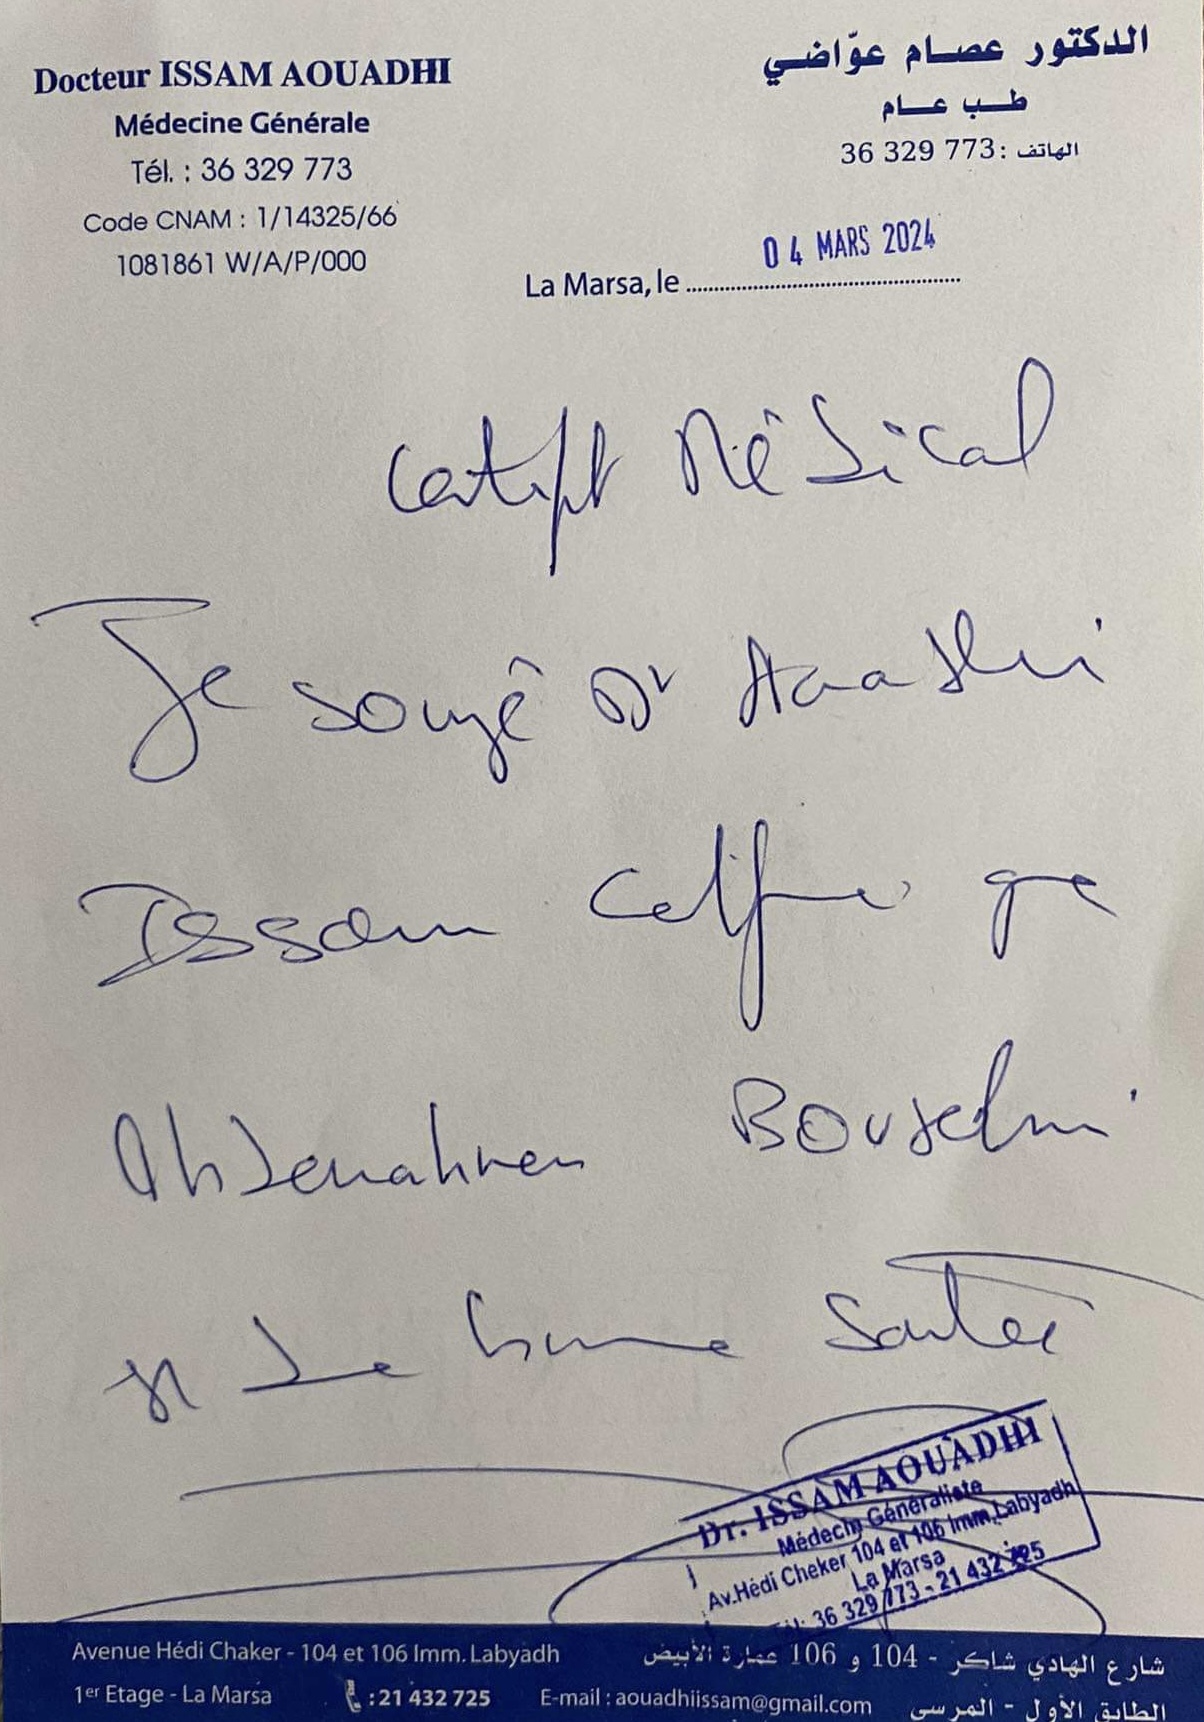 Docteur ISSAM AOUADHI
Médecine Générale
Tél. : 36 329 773
Code CNAM : 1/14325/66
1081861 W/A/P/000
الدكتور عصام عوّاضي
طب عام
الهاتف : 773 329 36
04 MARS 2024
La Marsa, le
Certift Médical
Je sougé Dr Aouadhi
Issam que
Abderrahmen Bouselmi
de bonne Santé
Dr. ISSAM AOUADHI
Médecin Généraliste
Av.Hédi Cheker 104 et 106 Imm.Labyadh
La Marsa
36 329 773 - 21 432 725
Avenue Hédi Chaker - 104 et 106 Imm. Labyadh
1er Etage - La Marsa : 21 432 725 E-mail : aouadhiissam@gmail.com
شارع الهادي شاكر - 104 و 106 عمارة الأبيض
الطابق الأول - المرسى